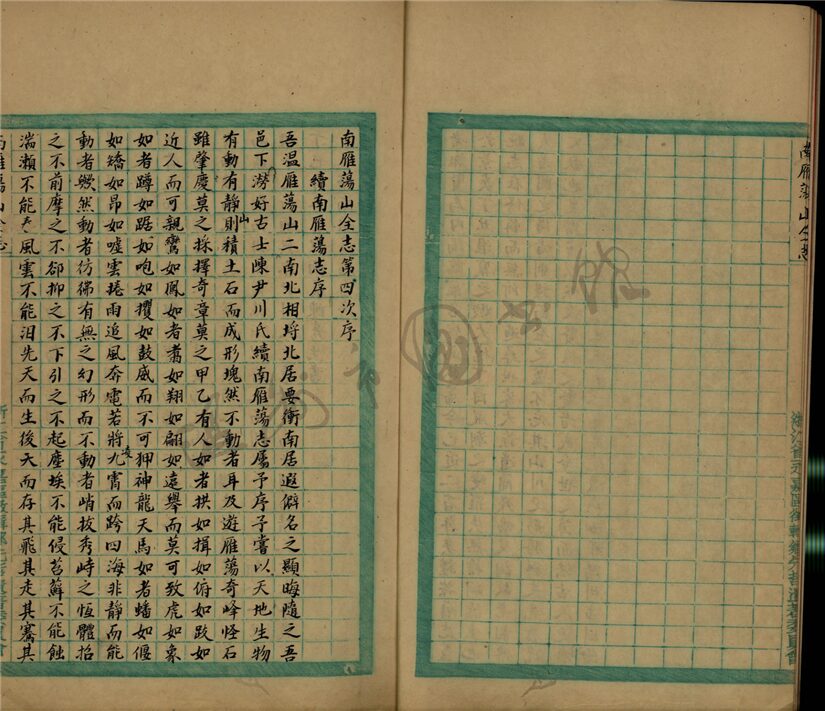 南雁蕩山全志
浙江省永嘉區徵輯鄉先哲遺著委員會
南雁蕩山全志第四次序
續南雁蕩志序
吾温雁蕩山二南北相埒北居要衝南居遐僻名之顯晦隨之吾
邑下澇好古士陳尹川氏續南雁蕩志屬予序予嘗以天地生物
有動有靜則山積土石而成形塊然不動者耳及遊雁蕩奇峰怪石
雖肇慶莫之採擇奇章莫之甲乙有人如者拱如揖如俯如跂如
近人而可親鸞如鳳如者翥如翔如翩如遠舉而莫可致虎如象
如者蹲如踞如咆如攫如鼓威而不可狎神龍天馬如者蟠如偃
如矯如昂如嘘雲捲雨追風奔電若將凌九霄而跨四海非靜而能
動者歟然動者彷彿有無之幻形而不動者峭拔秀峙之恆體招
之不前摩之不卻抑之不下引之不起塵埃不能侵苔蘚不能蝕
湍瀨不能風雲不能汨先天而生後天而存其飛其走其騫其
南雁蕩山全志